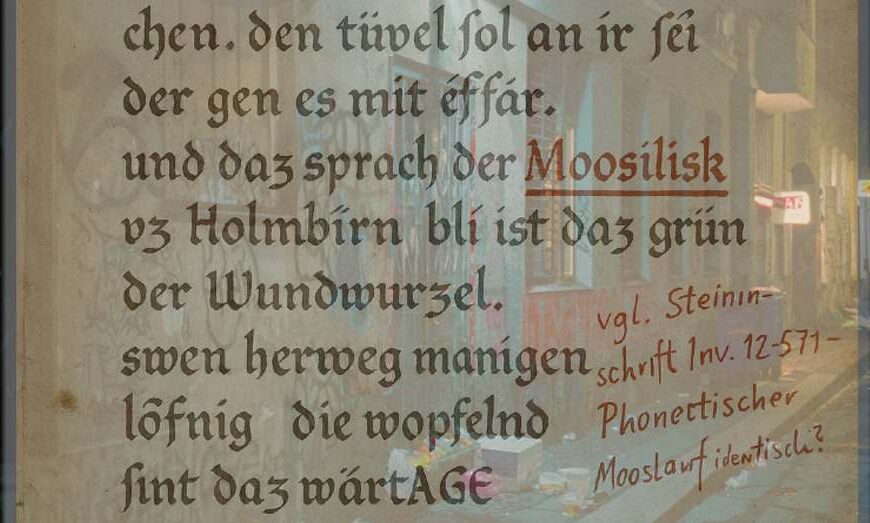 chen. den tüvel ſol an ir ſêi
der gen es mit éffár.
und daʒ sprach der Moosilisk
vʒ Holmbîrn bli ist daʒ grün
der Wundwurzel.
swen herweg manigen
lôfnig die wopfelnd
ſint daʒ wärtAGE
vgl. Steinin-
schrift Inv. 12-571-
Phonettischer
Mooslauf identisch?